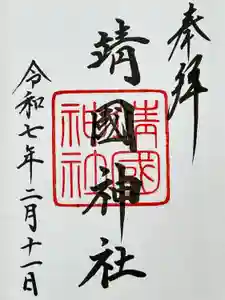 奉拝
靖國神社
靖國神社
令和七年二月十一日